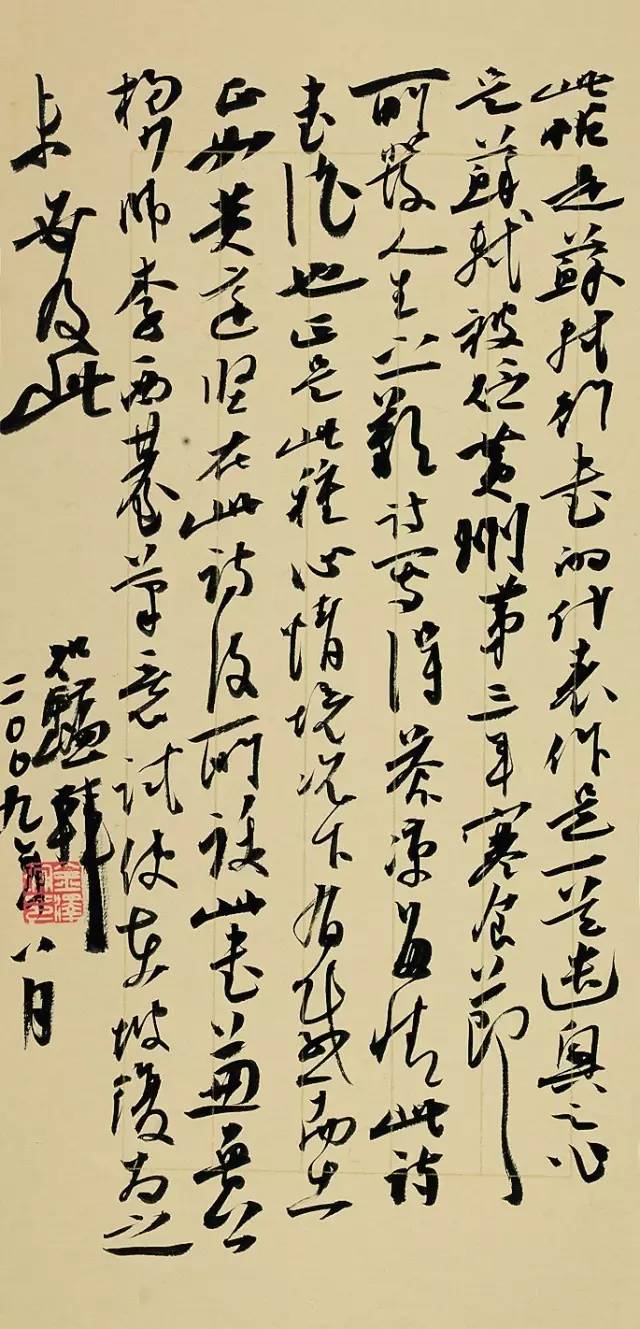 此帖是蘇軾行書的代表作是一首遣興之作
是蘇軾被貶黄州第三年寒食節
所發人生之歎詩寫得蒼凉多情此詩
書法也正是此種心情境况下有感而出
正如黄庭坚在此詩後所跋此書兼
楊少師李西臺筆意試使東坡復为之
未必及此
二〇〇九年八月